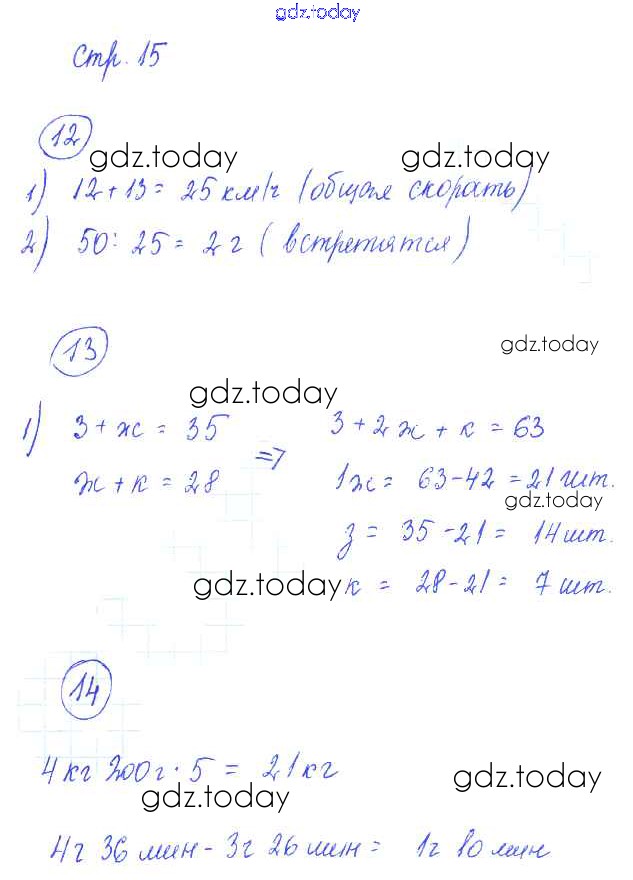 gdz.today
Стр. 15
12
gdz.today gdz.today
1) 12 + 13 = 25 км/ч (общая скорать)
2) 50 : 25 = 2 ч (встретятся)
13
gdz.today
gdz.today
1) З + ж = 35 З + 2ж + к = 63
ж + к = 28 => 1ж = 63 - 42 = 21 шт.
gdz.today
з = 35 - 21 = 14 шт.
gdz.today к = 28 - 21 = 7 шт.
14
4 кг 200 г · 5 = 21 кг
gdz.today gdz.today
4 ч 36 мин - 3 ч 26 мин = 1 ч 10 мин